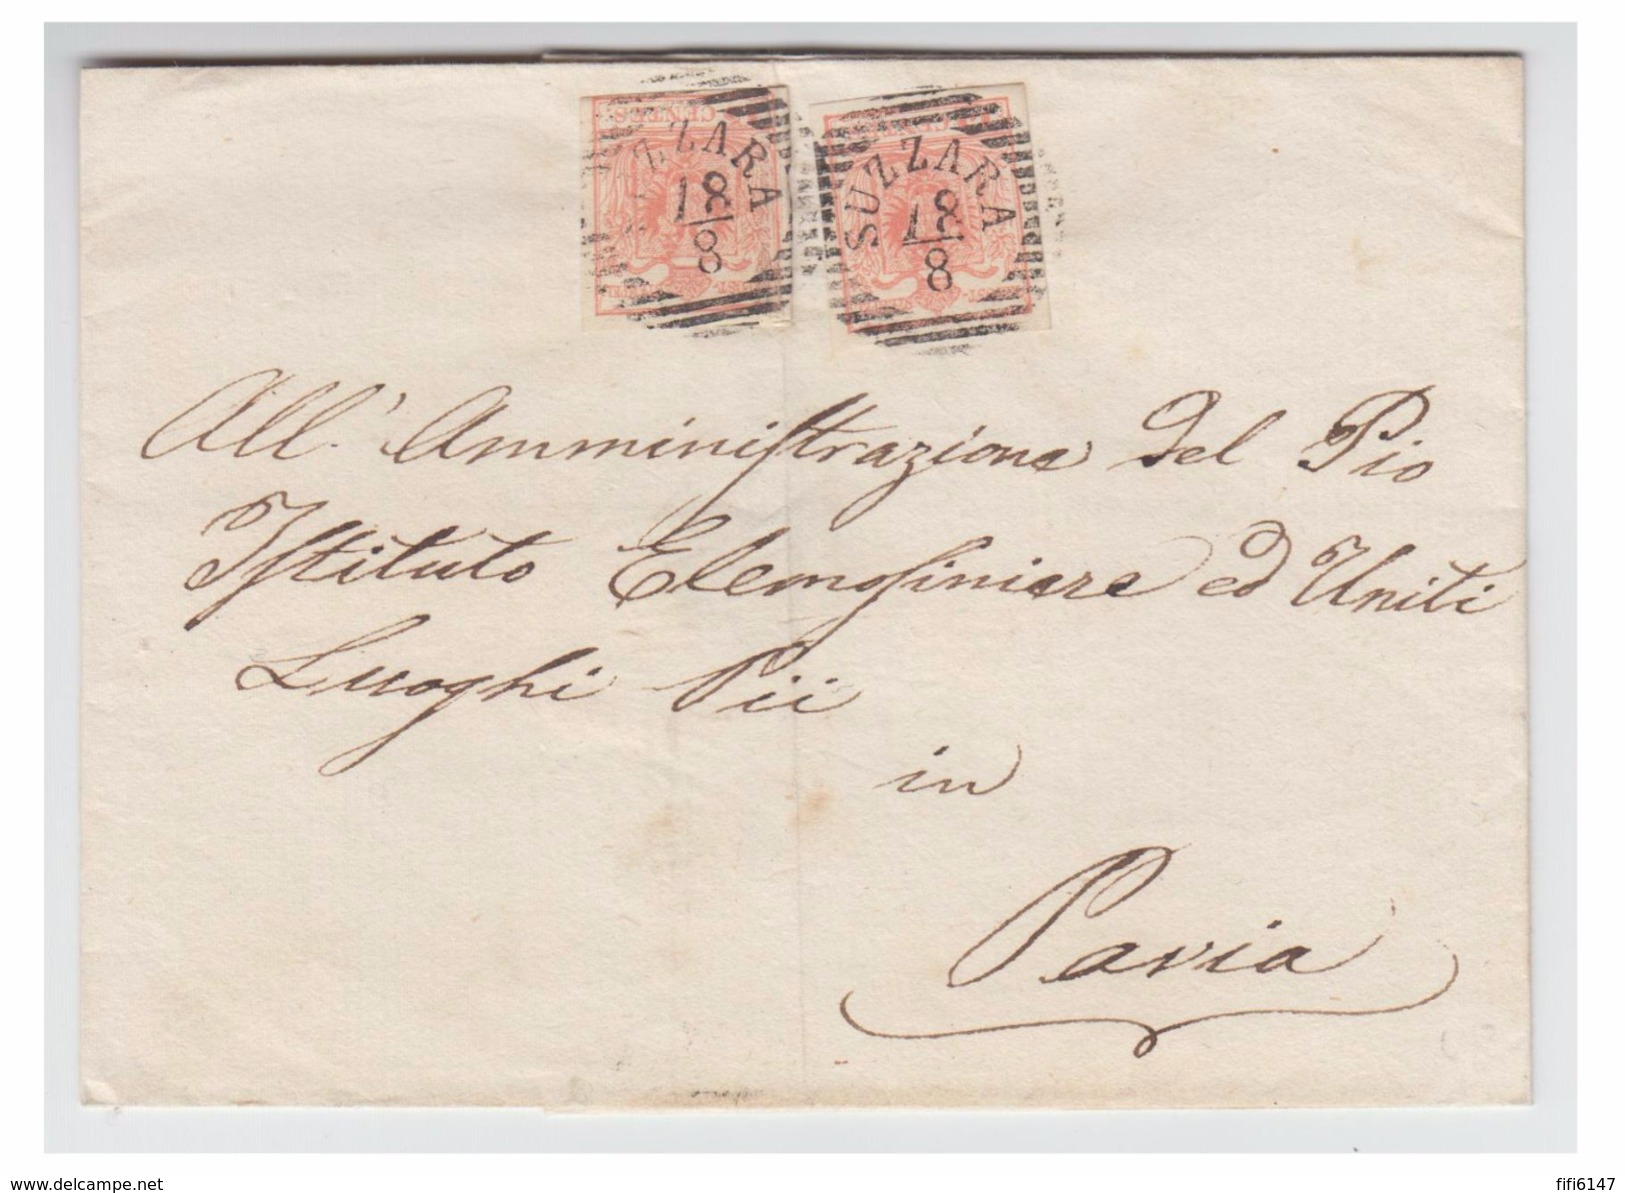 CENTES
ZZARA
18
8
SUZZARA
18
8
All' Amministrazione del Pio
Istituto Elemosiniere ed Uniti
Luoghi Pii
in
Pavia
www.delcampe.net
fifi6147